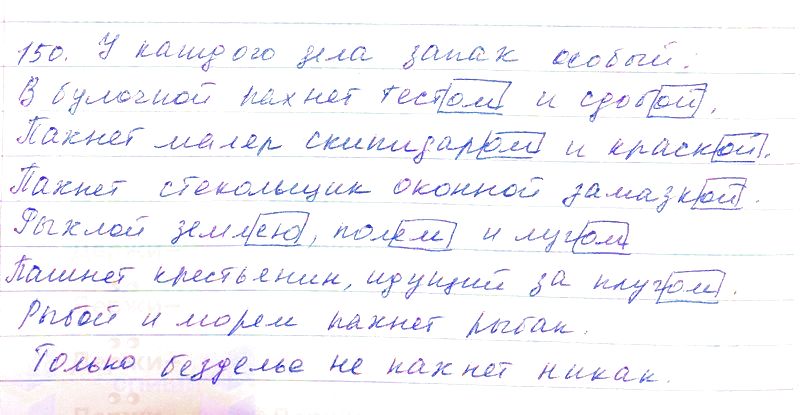 150. У каждого дела запах особый:
В булочной пахнет тестом и сдобой,
Пахнет маляр скипидаром и краской,
Пахнет стекольщик оконной замазкой.
Рыхлой землею, полем и лугом
Пашнет крестьенин, идущий за плугом.
Рыбой и морем пахнет рыбак.
Только безделье не пахнет никак.